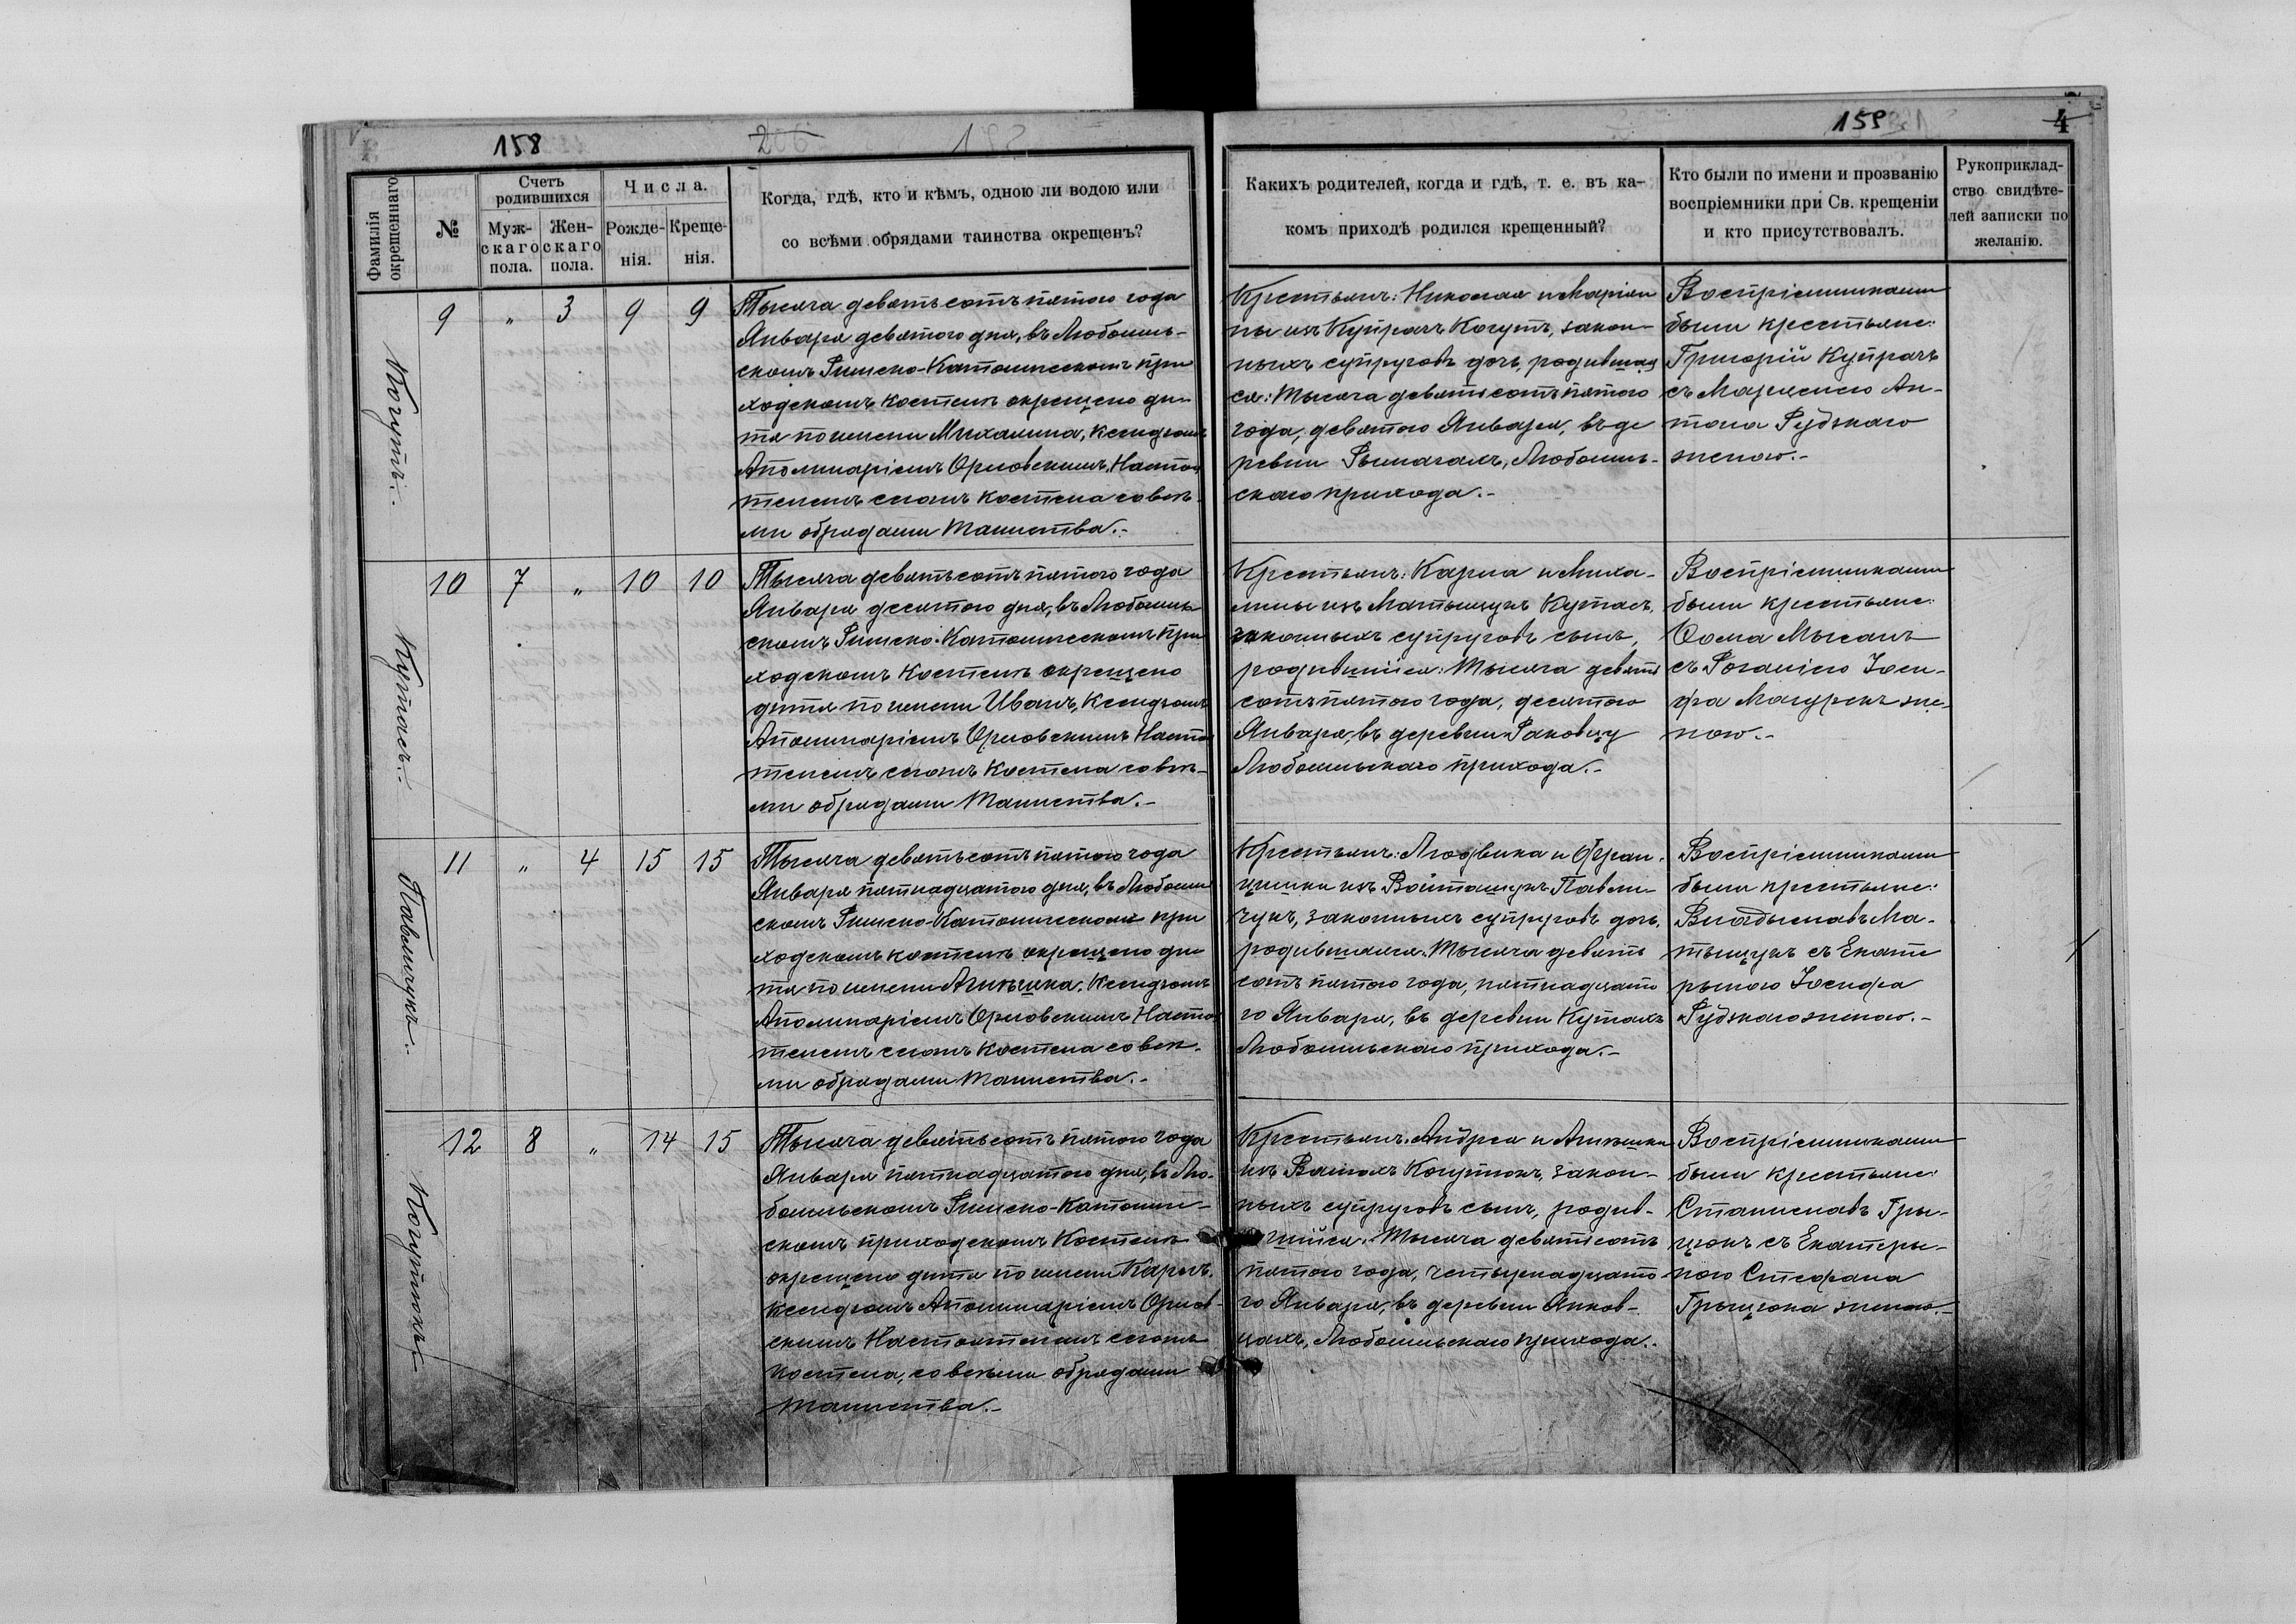 158
206
159
4
Фамилія окрещеннаго
№
Счетъ родившихся
Мужскаго пола.
Женскаго пола.
Числа.
Рожденія.
Крещенія.
Когда, гдѣ, кто и кѣмъ, одною ли водою или
со всѣми обрядами таинства окрещенъ?
Какихъ родителей, когда и гдѣ, т. е. въ ка-
комъ приходѣ родился крещенный?
Кто были по имени и прозванію
воспріемники при Св. крещеніи
и кто присутствовалъ.
Рукоприклад-
ство свидѣте-
лей записки по
желанію.
Когутъ.
9 " 3 9 9
Тысяча девятьсотъ пятого года
Января девятого дня, въ Любомль-
скомъ Римско-Католическомъ при
ходскомъ костелѣ окрещено ди-
тя по имени Михалина, Ксендзомъ
Аполинаріемъ Орловскимъ, Настоя
телемъ сего костела со всѣ-
ми обрядами Таинства.-
Крестьянъ: Николая и Маріан
ны изъ Купрачъ Когутъ, закон-
ныхъ супруговъ дочь, родившая
ся: Тысяча девятьсотъ пятого
года, девятого Января, въ де
ревни Рымачахъ, Любомль-
скаго прихода.-
Воспріемниками
были крестьяне:
Григорій Купрачъ
съ Марцелею Ан-
тона Рудзкаго
женою.-
Кутасъ.
10 7 " 10 10
Тысяча девятьсотъ пятого года
Января десятого дня, въ Любомль
скомъ Римско-Католическомъ при
ходскомъ Костелѣ окрещено
дитя по имени Иванъ, Ксендзомъ
Аполинаріемъ Орловскимъ Настоя
телемъ сего Костела со всѣ-
ми обрядами Таинства.-
Крестьянъ: Карла и Миха-
лины изъ Матыщукъ Кутасъ,
законныхъ супруговъ сынъ,
родившійся: Тысяча девять
сотъ пятого года, десятого
Января, въ деревни Раковцу
Любомльскаго прихода.-
Воспріемниками
были крестьяне:
Ѳома Мысакъ
съ Розаліею Іоси-
фа Мазурекъ же-
ною.-
Павличукъ.
11 " 4 15 15
Тысяча девятьсотъ пятого года
Января пятнадцатого дня, въ Любомль
скомъ Римско-Католическомъ при
ходскомъ костелѣ окрещено ди
тя по имени Агнѣшка, Ксендзомъ
Аполинаріемъ Орловскимъ Настоя
телемъ сего костела со всѣ-
ми обрядами Таинства.-
Крестьянъ: Людвика и Фран-
цишки изъ Войташукъ Павли-
чукъ, законныхъ супруговъ дочь,
родившаяся: Тысяча девять
сотъ пятого года, пятнадцато
го Января, въ деревни Кутахъ
Любомльскаго прихода.-
Воспріемниками
были крестьяне:
Владыславъ Ма-
тыщукъ съ Екате
рыною Іосифа
Рудзкаго женою.-
Когутюкъ
12 8 " 14 15
Тысяча девятьсотъ пятого года
Января пятнадцатого дня, въ Лю-
бомльскомъ Римско-Католиче-
скомъ приходскомъ Костелѣ
окрещено дитя по имени Кароль,
ксендзомъ Аполинаріемъ Орлов-
скимъ Настоятелемъ сего
костела, со всѣми обрядами
Таинства.-
Крестьянъ: Андрея и Агнѣшки
изъ Когутюкъ, закон-
ныхъ супруговъ сынъ, родив-
шійся: Тысяча девятьсотъ
пятого года, четырнадцато
го Января, въ деревни Янков-
цахъ, Любомльскаго прихода.-
Воспріемниками
были крестьяне:
Станиславъ Гры-
цюкъ съ Екатеры-
ною Стефана
Грыцюка женою.-